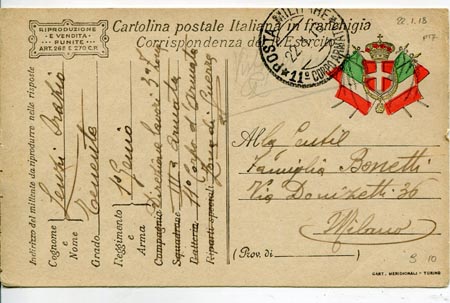 RIPRODUZIONE
E VENDITA
PUNITE
ART. 268 E 270 C.P.
Cartolina postale Italiana in franchigia
Corrispondenza del R. Esercito
POSTA MILITARE
11° CORPO D'ARMATA
22.1.18
Indirizzo del mittente da riprodurre nelle risposte
Cognome
e
Nome
Grado Tenente
Reggimento
e
Arma
1° Genio
Compagnia Direzione lavori
Squadrone III Armata
Batteria 11° Corpo d'Armata
Riparti speciali Zona di Guerra
Alla Gentil
Famiglia Bonetti
Via Donizetti 36
Milano
(Prov. di
)
S 10
CART. MERIDIONALI - TORINO